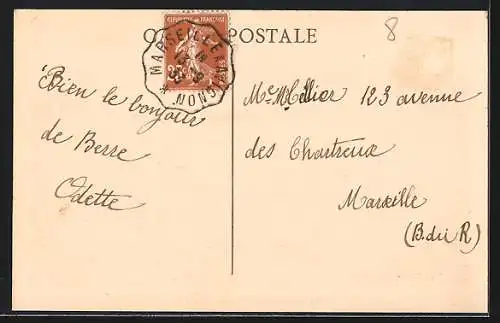 CARTE POSTALE
8
REPUBLIQUE FRANÇAISE
MARSEILLE À AVIGNON
Bien le bonjour
de Berre
Odette
123 avenue
des Chartreux
Marseille
(B. du R)